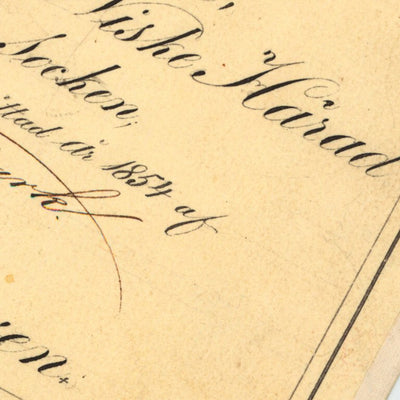 Niske Härad
Socken;
ttad år 1854 af
ark.
en.